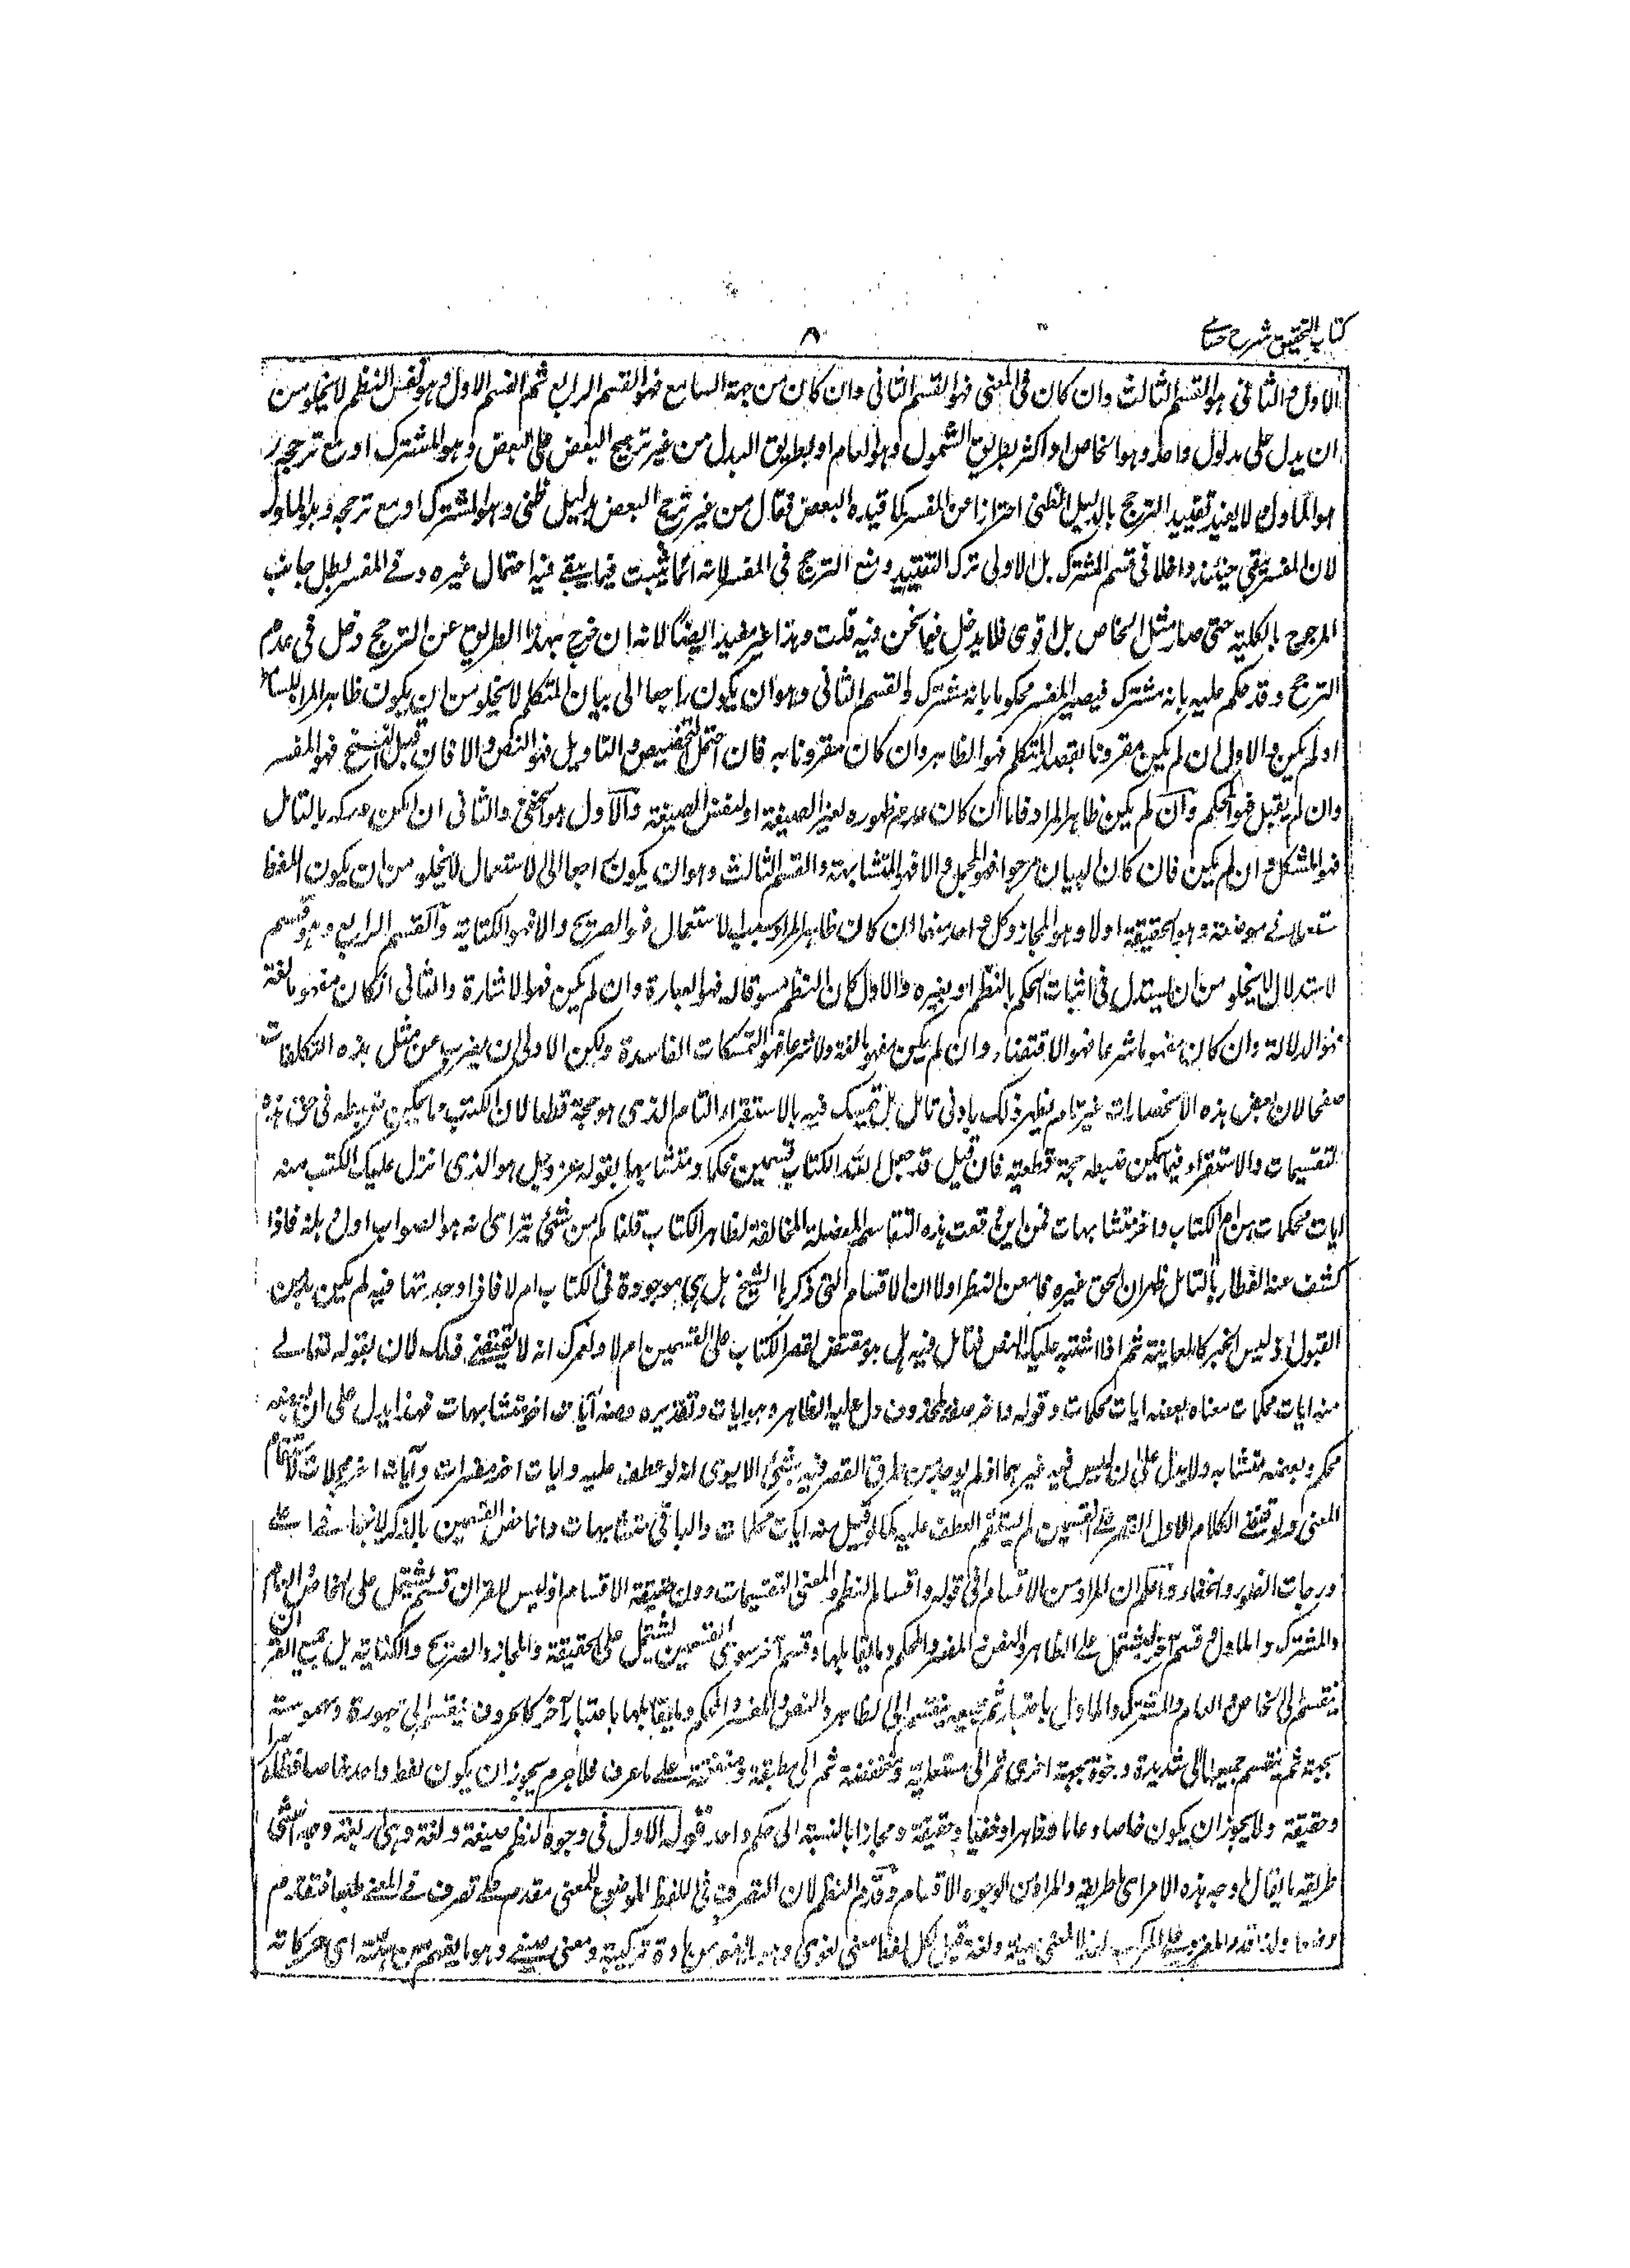 كتاب التحقيق شرح حسامی
٨
الاول والثانی هو القسم الثالث وان كان فی المعنی فهو القسم الثانی وان كان من جهة السامع فهو القسم الرابع ثم القسم الاول وهو نفس النظم لا يخلو من
ان يدل علی مدلول واحد وهو الخاص او اكثر بطريق الشمول وهو العام او بطريق البدل من غير ترجيح البعض علی البعض وهو المشترك او مع ترجيحه و
هو الماول ولا يفيد تقييد الترجيح بالدليل الظنی احترازا من المفسر كما قيده البعض فقال من غير ترجح البعض بدليل ظنی وهو المشترك او مع ترجحه وهو الماول
لان المفسر يبقی حينئذ داخلا فی قسم المشترك بل الاولی ترك التقييد ومنع الترجيح فی المفسر لانه انما يثبت فيما يبقے فيه احتمال غيره وفے المفسر بطل جانب
المرجوح بالكلية حتی صار مثل الخاص بل اقوی فلا يدخل فيما نحن فيه قلت وهذا غير مفيد ايضا لانه ان خرج بهذا الطريق عن الترجيح دخل فی عدم
الترجح وقد حكم عليه بانه مشترك فيصير المفسر محكوما بانه مشترك والقسم الثانی وهو ان يكون راجعا الی بيان المتكلم لا يخلو من ان يكون ظاهر المراد للسامع
او لم يكن والاول ان لم يكن مقرونا بقصد المتكلم فهو الظاهر وان كان مقرونا به فان احتمل التخصيص والتاويل فهو النص والا فان قبل النسخ فهو المفسر
وان لم يقبل فهو المحكم وان لم يكن ظاهر المراد فاما ان كان عدم ظهوره لغير الصيغة او لنفس الصيغة والاول هو الخفی والثانی ان امكن دركه بالتامل
فهو المشكل وان لم يكن فان كان البيان مرجوا فهو المجمل والا فهو المتشابه والقسم الثالث وهو ان يكون راجعا الی الاستعمال لا يخلو من ان يكون اللفظ
مستعملا فے موضعه وهو الحقيقة او لا وهو المجاز وكل واحد منهما ان كان ظاهر المراد بسبب الاستعمال فهو الصريح والا فهو الكناية والقسم الرابع وهو قسم
الاستدلال لا يخلو من ان يستدل فی اثبات الحكم بالنظم او بغيره والاول ان كان النظم مسوقا له فهو العبارة وان لم يكن فهو الاشارة والثانی ان كان مفهوما لغة
فهو الدلالة وان كان مفهوما شرعا فهو الاقتضاء وان لم يكن مفهوما لغة ولا شرعا فهو التمسكات الفاسدة ولكن الاولی ان يضرب عن مثل هذه التكلفات
صفحا لان بعض هذه الانحصارات غير تام يظهر ذلك بادنی تامل بل يتمسك فيه بالاستقراء التام الذی هو حجة قطعا لان الكتاب مما يمكن ضبطه فی حق هذه
التقسيمات والاستقراء فيما يمكن ضبطه حجة قطعية فان قيل قد جعل الله الكتاب قسمين محكما ومتشابها بقوله عز وجل هو الذی انزل عليك الكتب منه
ايات محكمات هن ام الكتاب واخر متشابهات فمن اين وقعت هذه التقاسيم المفصلة المخالفة لظاهر الكتاب قلنا كم من شئ يترای انه هو الصواب اول وهلة فاذا
كشف عنه الغطاء بالتامل ظهر ان الحق غيره فامعن النظر اولا ان الاقسام التی ذكرها الشيخ هل هی موجودة فی الكتاب ام لا فاذا وجدتها فيه لم يكن بد من
القبول اذ ليس الخبر كالمعاينة ثم اذا اشتبه عليك النص فتامل فيه هل هو مقتض لقصر الكتاب علی القسمين ام لا ولعمرك انه لا يقتضے ذلك لان بقوله تعالے
منه ايات محكمات معناه بعضه ايات محكمات وقوله واخر صفة لمحذوف دل عليه الظاهر وهو ايات وتقديره ومنه آيات اخر متشابهات فهذا يدل علی ان بعضه
محكم وبعضه متشابه ولا يدل علی ان ليس فيه غيرهما اذ لم يوجد من طرق القصر فيه شئ الا يری انه لو عطف عليه وايات اخر مفسرات وآيات اخر مجملات لاستقام
المعنی ولو اقتضے الكلام الاول القصر علے القسمين لم يستقم العطف عليه كما لو قيل منه ايات محكمات والباقی متشابهات وانما خص القسمين بالذكر لانهما فے اعلے
درجات الظهور والخفاء واعلم ان المراد من الاقسام فی قوله واقسام النظم والمعنی التقسيمات دون حقيقة الاقسام اذ ليس للقران قسم يشتمل علی الخاص والعام
والمشترك والماول وقسم آخر يشتمل علے الظاهر والنص والمفسر والمحكم وما يقابلها وقسم آخر سوی القسمين يشتمل علی الحقيقة والمجاز والصريح والكناية بل جميع القران
ينقسم الی الخاص والعام والمشترك والماول باعتبار ثم جميعه ينقسم الی الظاهر والنص والمفسر والمحكم وما يقابلها باعتبار آخر كالحروف ينقسم الی مجهورة ومهموسة
بجهة ثم ينقسم جميعها الی شديدة ورخوة بجهة اخری ثم الی مستعلية ومنخفضة ثم الی مطبقة ومنفتحة علے ما عرف فلا جرم يجوز ان يكون لفظ واحد خاصا وظاهرا
وحقيقة ولا يجوز ان يكون خاصا وعاما وظاهرا وخفيا وحقيقة ومجازا بالنسبة الی حكم واحد قوله الاول فی وجوه النظم صيغة ولغة وهی اربعة وجه الشئ
طريقه يقال ما وجه هذا الامر ای طريقه والمراد من الوجوه الاقسام وقدم النظم لان التصرف فی اللفظ الموضوع للمعنی مقدم علے تصرف فے المعنے طبعا فتقدم
وضعا ولذا قدم المفرد علے المركب صيغة ولغة قيل لكل لفظ معنی لغوی وهو ما يفهم من مادة تركيبه ومعنی صيغے وهو ما يفهم من هيئته ای حركاته